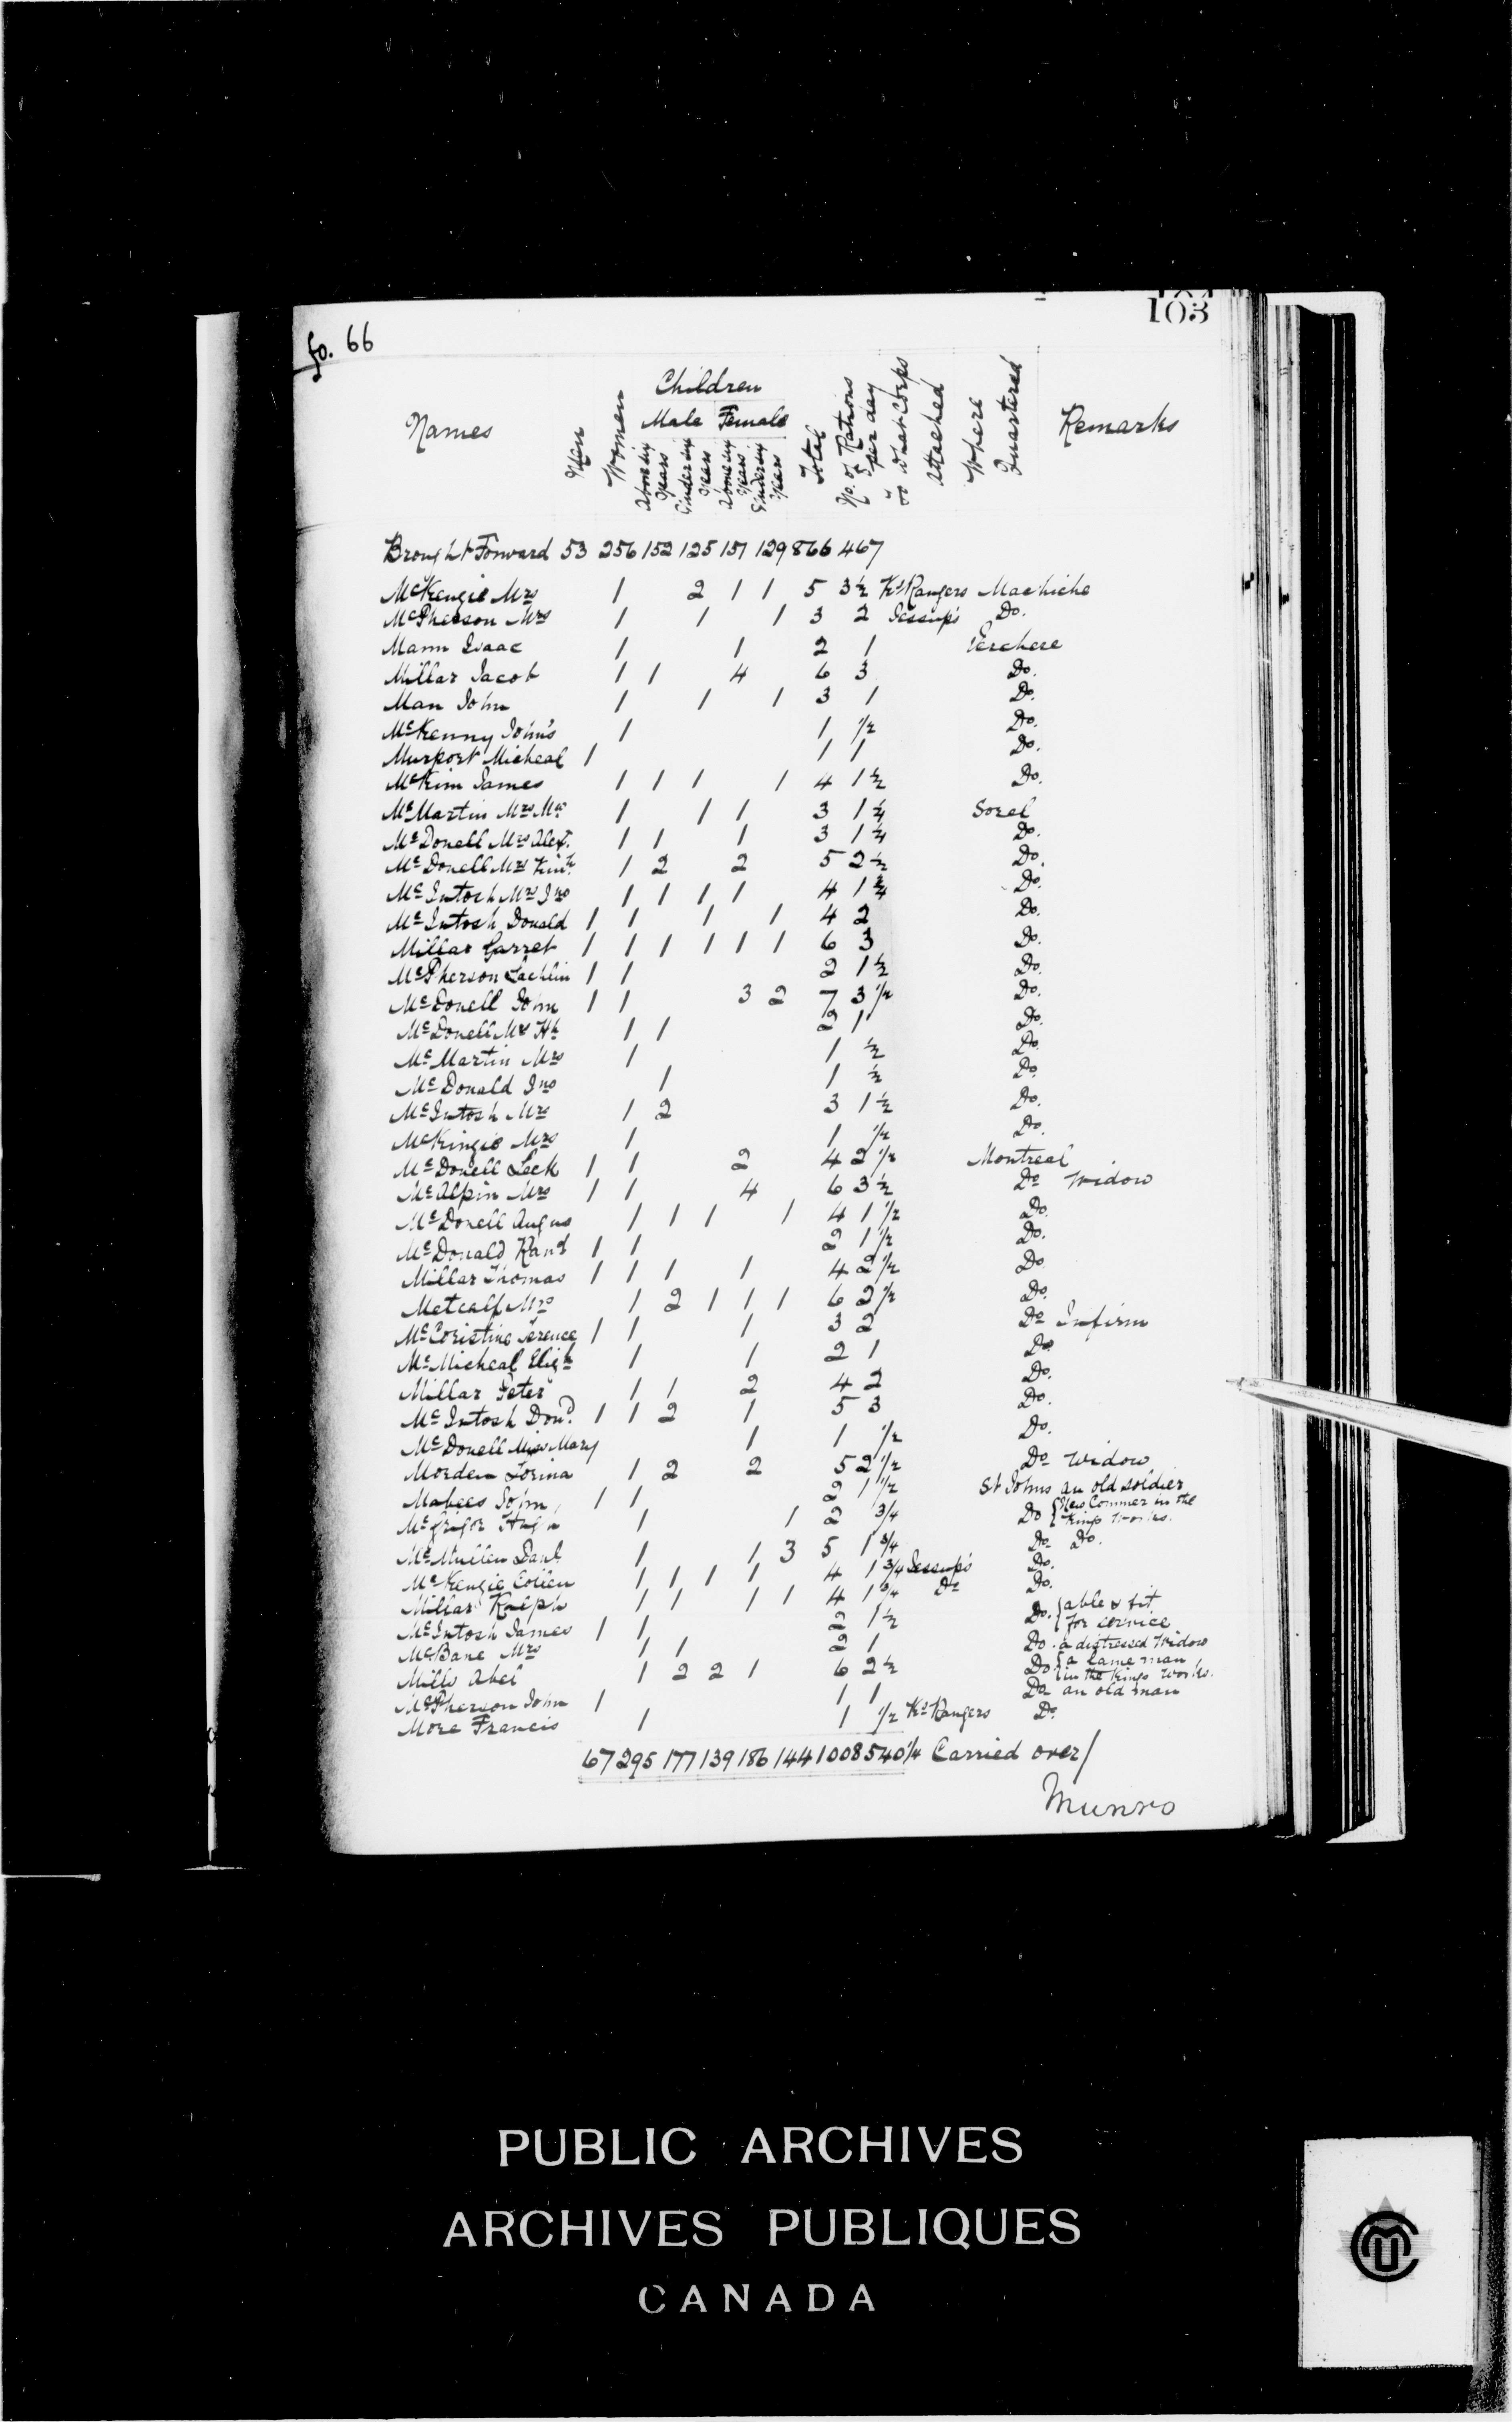 fo. 66
103
Names
Men
Women
Children
Male Female
Above six Years
Under six Years
Above six Years
Under six Years
Total
No. of Rations per day
To What Corps Attached
Where Quartered
Remarks
Brought Forward 53 256 152 125 151 129 866 467
McKenzie Mrs 1 2 1 1 5 3½ Ks Rangers Machiche
McPherson Mrs 1 1 1 3 2 Jessup's Do.
Mann Isaac 1 1 2 1 Verchere
Millar Jacob 1 1 4 6 3 Do.
Man John 1 1 1 3 1 Do.
McKenny John's 1 1 1/2 Do.
Murport Micheal 1 1 1 Do.
McKim James 1 1 1 1 4 1½ Do.
McMartin Mrs Mc 1 1 1 3 1¼ Sorel
McDonell Mrs Alex. 1 1 1 3 1¼ Do.
McDonell Mrs 1 2 2 5 2½ Do.
McIntosh Mrs Jno 1 1 1 1 4 1¾ Do.
McIntosh Donald 1 1 1 1 4 2 Do.
Millar Garret 1 1 1 1 1 1 6 3 Do.
McPherson Lachlin 1 1 2 1½ Do.
McDonell John 1 1 3 2 7 3 1/2 Do.
McDonell Mrs Hh 1 1 2 1 Do.
McMartin Mrs 1 1 ½ Do.
McDonald Jno 1 1 ½ Do.
McIntosh Mrs 1 2 3 1½ Do.
McKingie Mrs 1 1 1/2 Do.
McDonell Leek 1 1 2 4 2 1/2 Montreal
McAlpin Mrs 1 1 4 6 3½ Do Widow
McDonell Angus 1 1 1 1 4 1 1/2 Do.
McDonald Rand 1 1 2 1 1/2 Do.
Millar Thomas 1 1 1 1 4 2 1/2 Do
Metcalf Mrs 1 2 1 1 1 6 2 1/2 Do.
McCoristine Terence 1 1 1 3 2 Do Infirm
McMicheal Elizh 1 1 2 1 Do
Millar Peter 1 1 2 4 2 Do.
McIntosh Dond. 1 1 2 1 5 3 Do.
McDonell Miss Mary 1 1 1/2 Do.
Morden Lorina 1 2 2 5 2 1/2 Do Widow
Mabees John 1 1 2 1 1/2 St Johns an old soldier
McGrigor Hugh 1 1 2 3/4 Do {New Commer in the
Kings Works.
McMullen Danl. 1 1 3 5 1 3/4 Do Do.
McKenzie Collen 1 1 1 1 4 1 3/4 Jessup's Do.
Millar Ralph 1 1 1 1 4 1 3/4 Do Do.
McIntosh James 1 1 2 1½ Do. {able & fit
for service
McBane Mrs 1 1 2 1 Do. a distressed Widow
Mills Abel 1 2 2 1 6 2½ Do {a lame man
in the Kings Works.
McPherson John 1 1 1 Do an old man
More Francis 1 1 1/2 Ks Rangers Do.
67 295 177 139 186 144 1008 540 1/4 Carried over/
Munro
PUBLIC ARCHIVES
ARCHIVES PUBLIQUES
CANADA